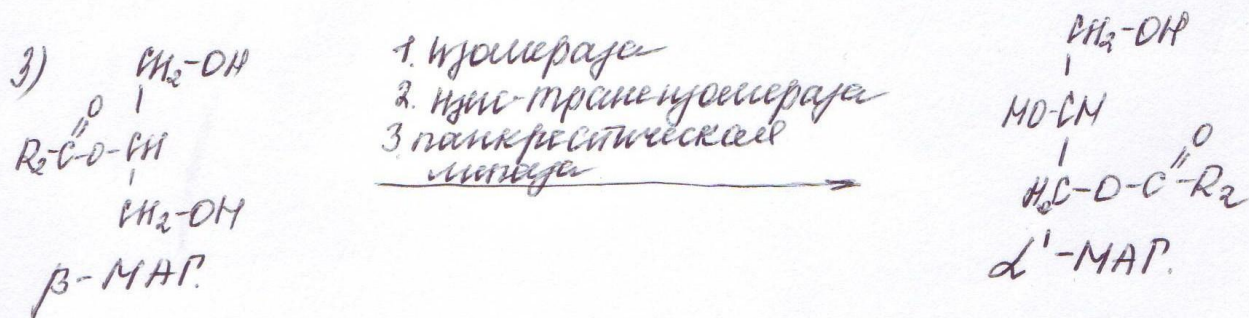 3)
CH₂-OH
R₂-C-O-CH
O
CH₂-OH
β-МАГ.
1. Изомераза
2. цис-трансизомераза
3. панкреатическая
липаза
CH₂-OH
HO-CH
O
H₂C-O-C-R₂
α'-МАГ.